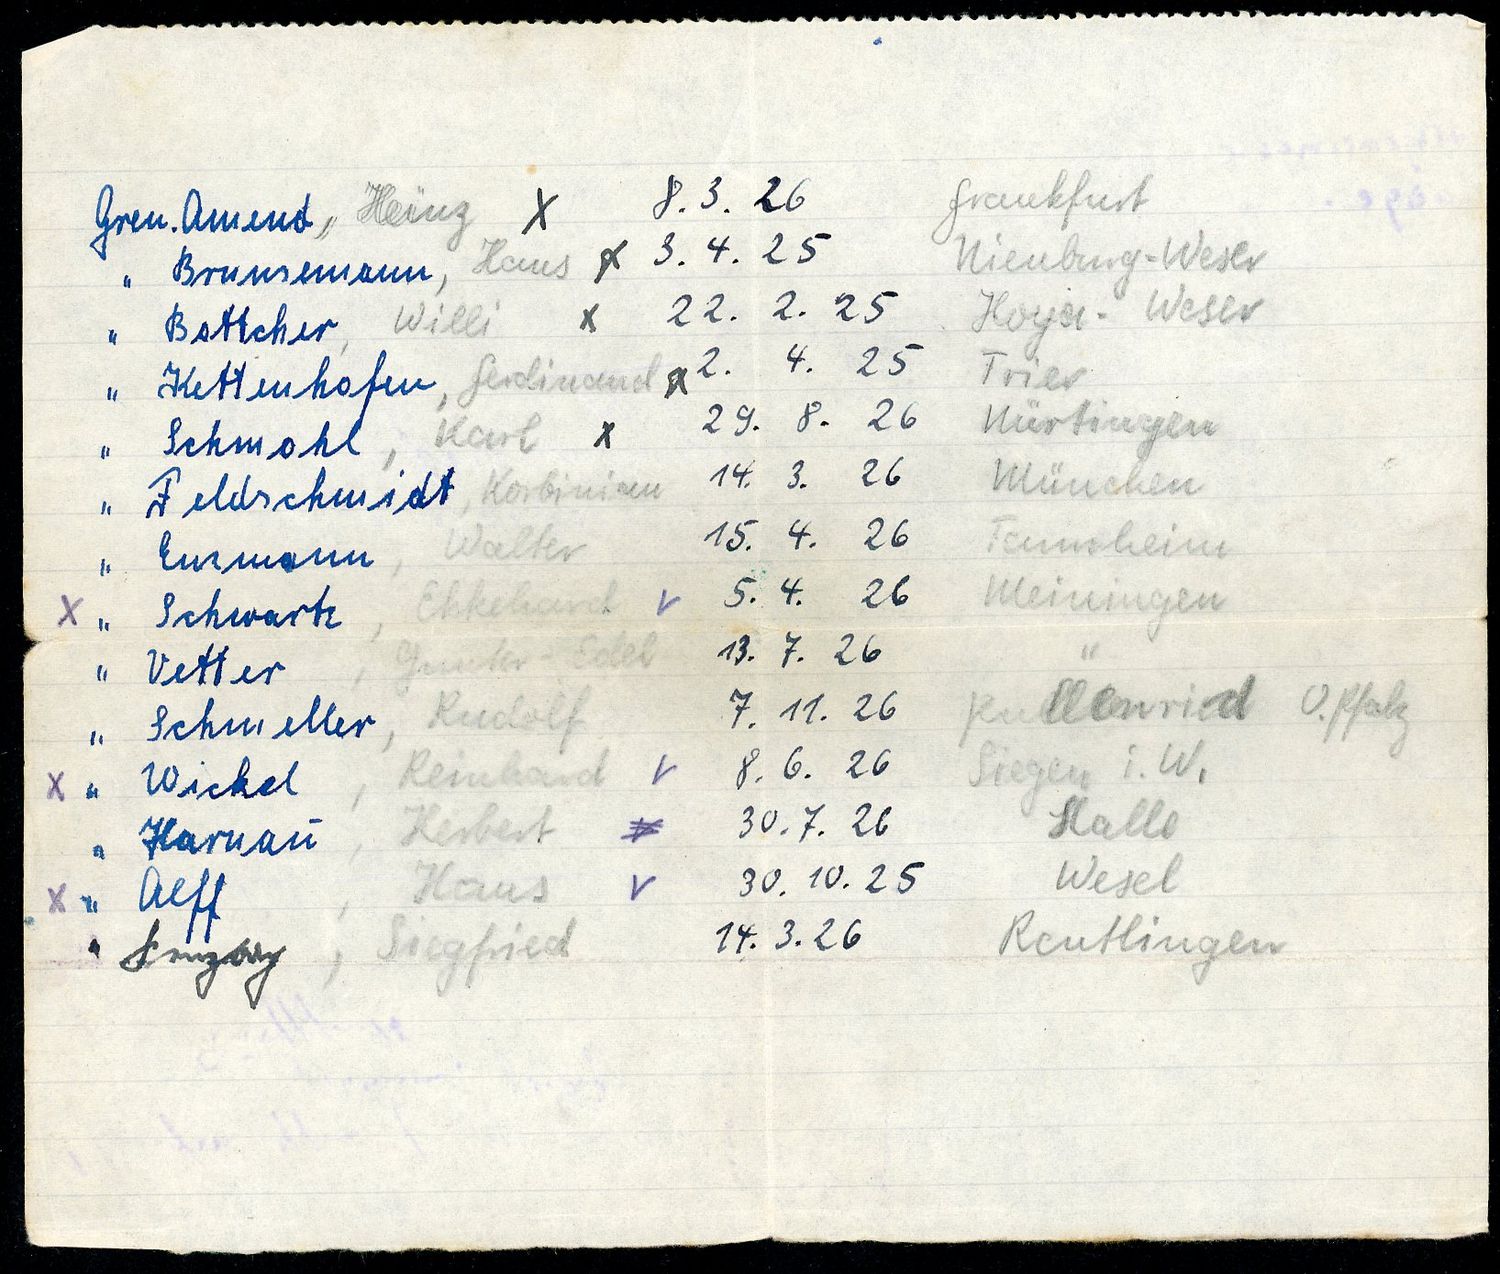 Gren. Amend, Heinz X 8. 3. 26 Frankfurt
" Brunsemann, Hans X 3. 4. 25 Nienburg-Weser
" Bottcher, Willi X 22. 2. 25 Hoya-Weser
" Kettenhofen, Ferdinand X 2. 4. 25 Trier
" Schmohl, Karl X 29. 8. 26 Nürtingen
" Feldschmidt, Korbinian 14. 3. 26 München
" Enzmann, Walter 15. 4. 26 Tannheim
X " Schwartz, Ehkehard v 5. 4. 26 Meiningen
" Vetter, Gunter-Edel 13. 7. 26 "
" Schmeller, Rudolf 7. 11. 26 O.Pfalz
X " Wickel, Reinhard v 8. 6. 26 Siegen i. W.
" Harnau, Herbert 30. 7. 26 Halle
X " Aeff, Hans v 30. 10. 25 Wesel
" , Siegfried 14. 3. 26 Reutlingen